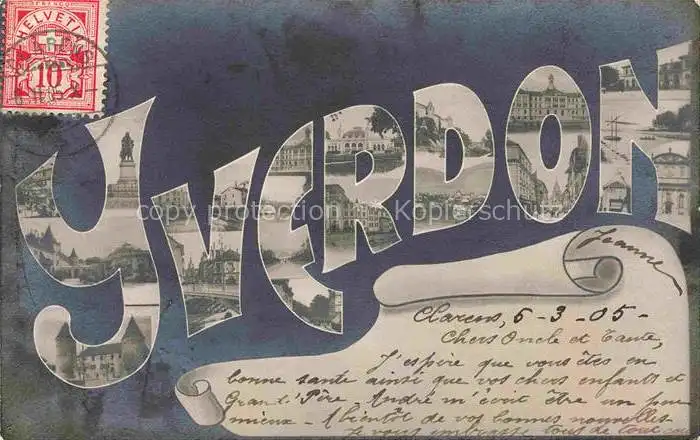 HELVETIA
10
YVERDON
copy protection Kopierschutz
Jeanne
Clarens, 6-3-05-
Chers Oncle et Tante,
J'espère que vous êtes en
bonne santé ainsi que vos chers enfants et
Grand'Père. André m'écrit être un peu
mieux. A bientôt de vos bonnes nouvelles.
Je vous embrasse tous de tout